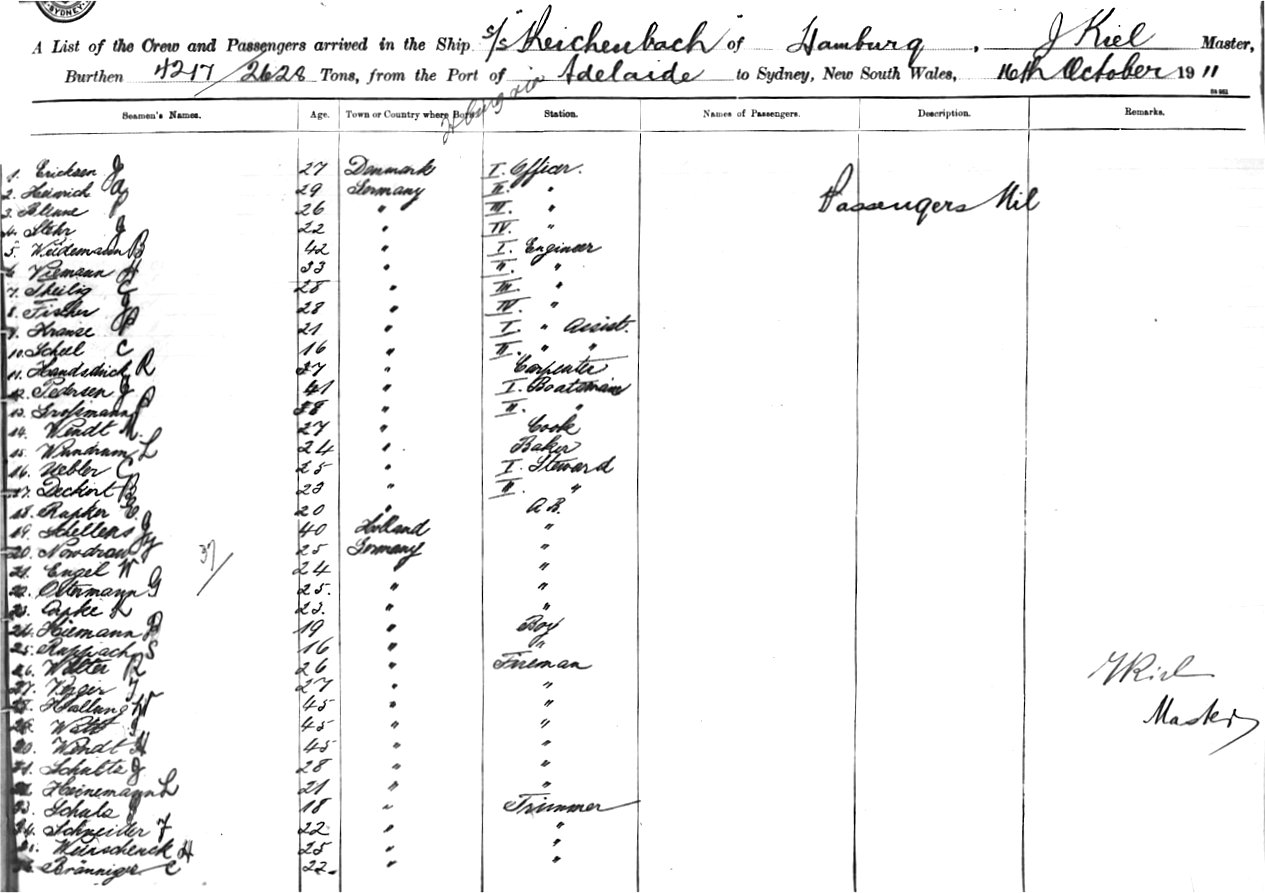 SYDNEY.
A List of the Crew and Passengers arrived in the Ship S/S "Reichenbach" of Hamburg, J Kiel Master,
Burthen 4217/2628 Tons, from the Port of Hburg via Adelaide to Sydney, New South Wales, 16th October 1911
Seamen's Names. Age. Town or Country where Born Station. Names of Passengers. Description. Remarks.
1. Ericksen J 27 Denmark I. Officer.
2. Heinrich A 29 Germany II. "
3. 26 " III. "
Passengers Nil
4. Stehr J 22 " IV. "
5. Weidemann B 42 " I. Engineer
6. Viemann H 33 " II. "
7. Theilig C 28 " III. "
8. Fischer J 28 " IV. "
9. Krause P 21 " I. " Assist.
10. Scheel C 16 " II. " "
11. Handsdrick R 27 " Carpenter
12. Pedersen J 41 " I. Boatsmann
13. Großmann P 38 " II. "
14. Wendt M. 27 " Cook
15. Wundram L 24 " Baker
16. Uebler C 25 " I. Steward
17. Deckert B 23 " II. "
18. Rapker E. 20 " A.B.
19. Schellens J 40 Holland "
20. Nowdraw Jy 25 Germany "
37/
21. Engel W 24 " "
22. Ostermann G 25. " "
23. 23. " "
24. Hiemann B 19 " Boy
25. Ruppach S 16 " "
26. Walter R 26 " Fireman
27. 27 " "
J Kiel
28. Hallung W 45 " "
Master
29. Witt J 45 " "
30. Wendt H 45 " "
31. Schultz J 28 " "
32. Heinemann L 21 " "
33. Schulz J 18 " Trimmer
34. Schneider F 22 " "
35. Weinschenck H 25 " "
36. Bränniger C 22 " "